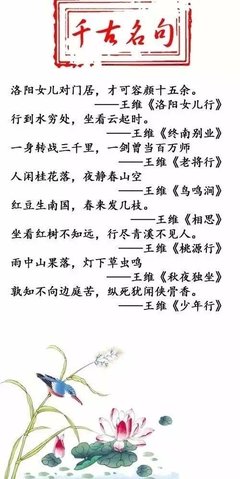 千古名句
洛阳女儿对门居，才可容颜十五余。
——王维《洛阳女儿行》
行到水穷处，坐看云起时。
——王维《终南别业》
一身转战三千里，一剑曾当百万师
——王维《老将行》
人闲桂花落，夜静春山空
——王维《鸟鸣涧》
红豆生南国，春来发几枝。
——王维《相思》
坐看红树不知远，行尽青溪不见人。
——王维《桃源行》
雨中山果落，灯下草虫鸣
——王维《秋夜独坐》
孰知不向边庭苦，纵死犹闻侠骨香。
——王维《少年行》